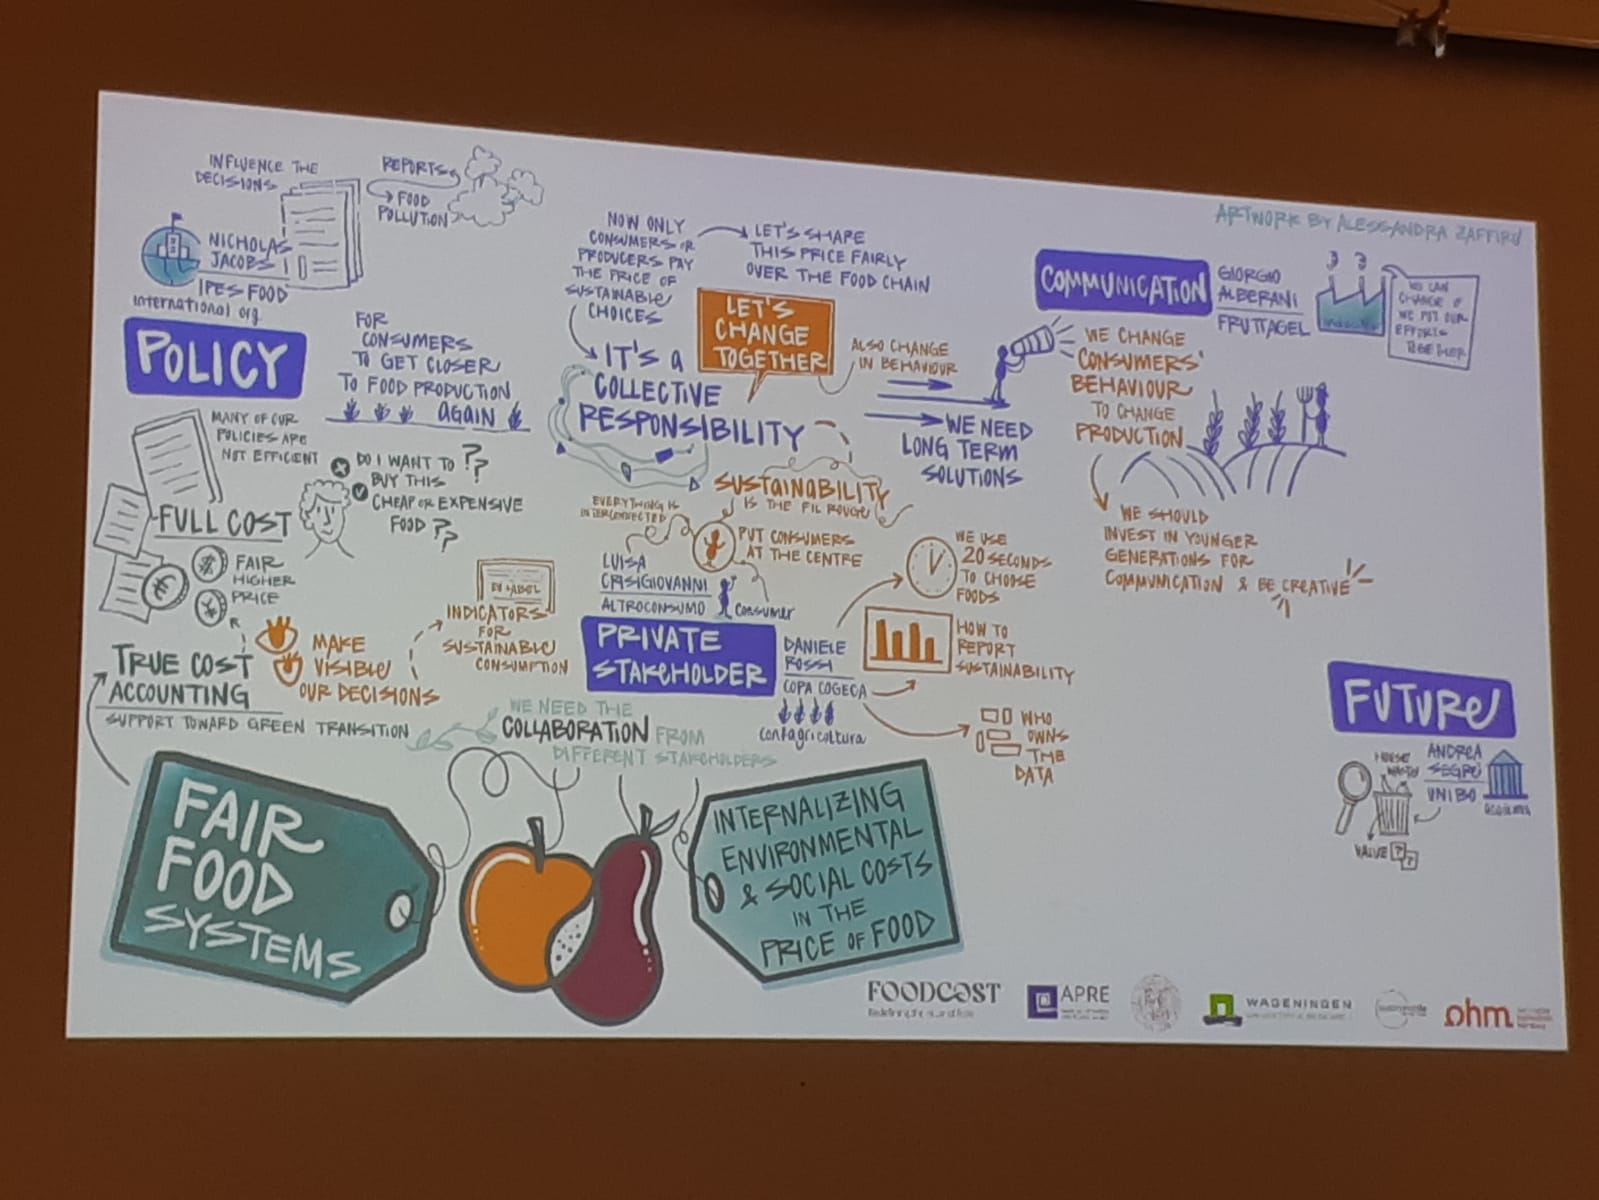 ARTWORK BY ALESSANDRA ZAFFIRO
INFLUENCE THE
DECISIONS
REPORTS
FOOD
POLLUTION
NICHOLAS
JACOBS
IPES FOOD
international org.
POLICY
FOR
CONSUMERS
TO GET CLOSER
TO FOOD PRODUCTION
AGAIN
MANY OF OUR
POLICIES ARE
NOT EFFICIENT
DO I WANT TO ??
BUY THIS
CHEAP OR EXPENSIVE
FOOD ??
FULL COST
FAIR
HIGHER
PRICE
TRUE COST
ACCOUNTING
SUPPORT TOWARD GREEN TRANSITION
MAKE
VISIBLE
OUR DECISIONS
INDICATORS
FOR
SUSTAINABLE
CONSUMPTION
NOW ONLY
CONSUMERS OR
PRODUCERS PAY
THE PRICE OF
SUSTAINABLE
CHOICES
LET'S SHARE
THIS PRICE FAIRLY
OVER THE FOOD CHAIN
LET'S
CHANGE
TOGETHER
IT'S A
COLLECTIVE
RESPONSIBILITY
ALSO CHANGE
IN BEHAVIOUR
WE NEED
LONG TERM
SOLUTIONS
SUSTAINABILITY
IS THE FIL ROUGE
EVERYTHING IS
INTERCONNECTED
PUT CONSUMERS
AT THE CENTRE
LUISA
CRISIGIOVANNI
ALTROCONSUMO
Consumer
PRIVATE
STAKEHOLDER
DANIELE
ROSSI
COPA COGECA
Confagricoltura
WE USE
20 SECONDS
TO CHOOSE
FOODS
HOW TO
REPORT
SUSTAINABILITY
WHO
OWNS
THE
DATA
WE NEED THE
COLLABORATION FROM
DIFFERENT STAKEHOLDERS
COMMUNICATION
GIORGIO
ALBERANI
FRUTTAGEL
WE CAN
CHANGE IF
WE PUT OUR
EFFORTS
TOGETHER
WE CHANGE
CONSUMERS'
BEHAVIOUR
TO CHANGE
PRODUCTION
WE SHOULD
INVEST IN YOUNGER
GENERATIONS FOR
COMMUNICATION & BE CREATIVE
FUTURE
HOUSE
WASTE
ANDREA
SEGRÈ
UNIBO
VALUE ??
FAIR
FOOD
SYSTEMS
INTERNALIZING
ENVIRONMENTAL
& SOCIAL COSTS
IN THE
PRICE OF FOOD
FOODCOST
APRE
WAGENINGEN
ohm